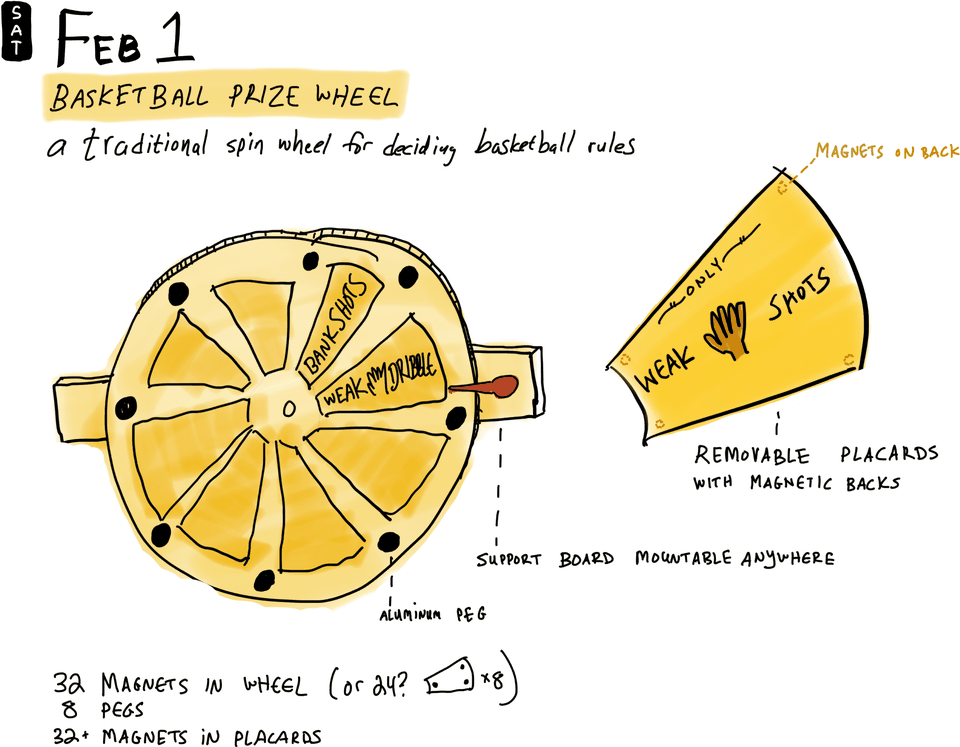 SAT
FEB 1
BASKETBALL PRIZE WHEEL
a traditional spin wheel for deciding basketball rules
MAGNETS ON BACK
ONLY
WEAK SHOTS
BANKSHOTS
WEAK DRIBBLE
REMOVABLE PLACARDS
WITH MAGNETIC BACKS
SUPPORT BOARD MOUNTABLE ANYWHERE
ALUMINUM PEG
32 MAGNETS IN WHEEL (or 24? ×8)
8 PEGS
32+ MAGNETS IN PLACARDS